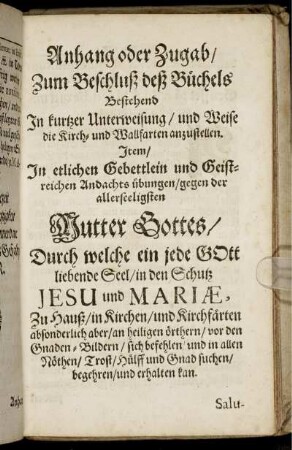 Anhang oder Zugab/
Zum Beschluß deß Büchels
Bestehend
In kurtzer Unterweisung/ und Weise
die Kirch- und Wallfarten anzustellen.
Item/
In etlichen Gebettlein und Geist-
reichen Andachts übungen/gegen der
allerseeligsten
Mutter Gottes/
Durch welche ein jede GOtt
liebende Seel/in den Schutz
JESU und MARIÆ,
Zu Hauß/in Kirchen/und Kirchfärten
absonderlich aber/an heiligen örthern/ vor den
Gnaden-Bildern/ sich befehlen/ und in allen
Nöthen/ Trost/ Hülff und Gnad suchen/
begehren/und erhalten kan.
Salu-